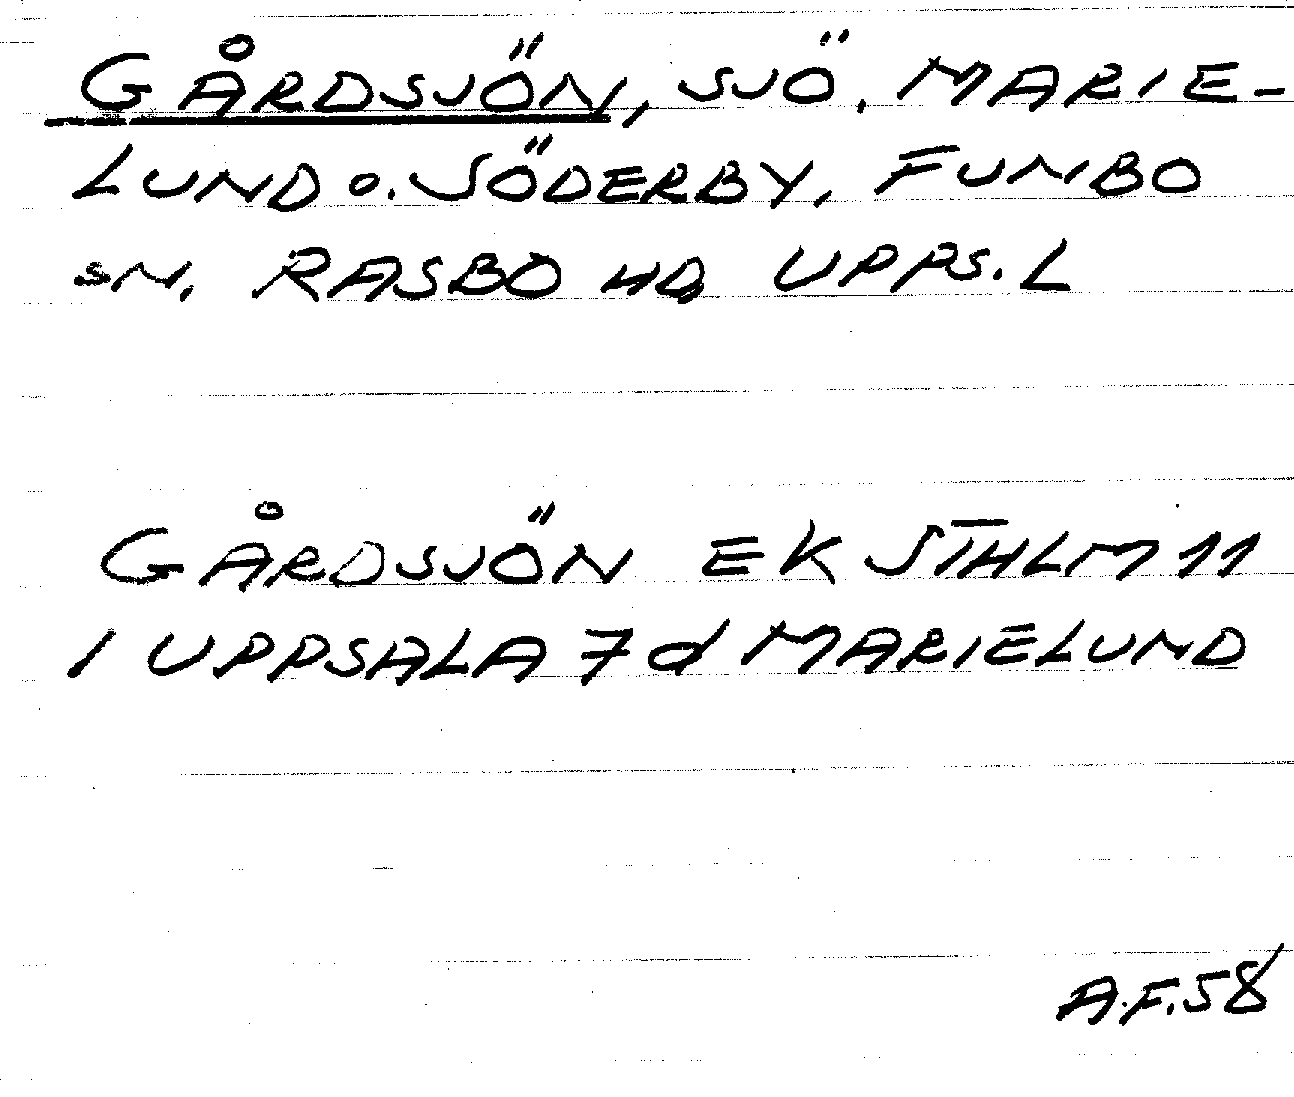 GÅRDSJÖN, SJÖ, MARIE-
LUND o. SÖDERBY, FUNBO
SN, RASBO HD, UPPS. L
GÅRDSJÖN EK STHLM 11
I UPPSALA 7 d MARIELUND
A.F. 58